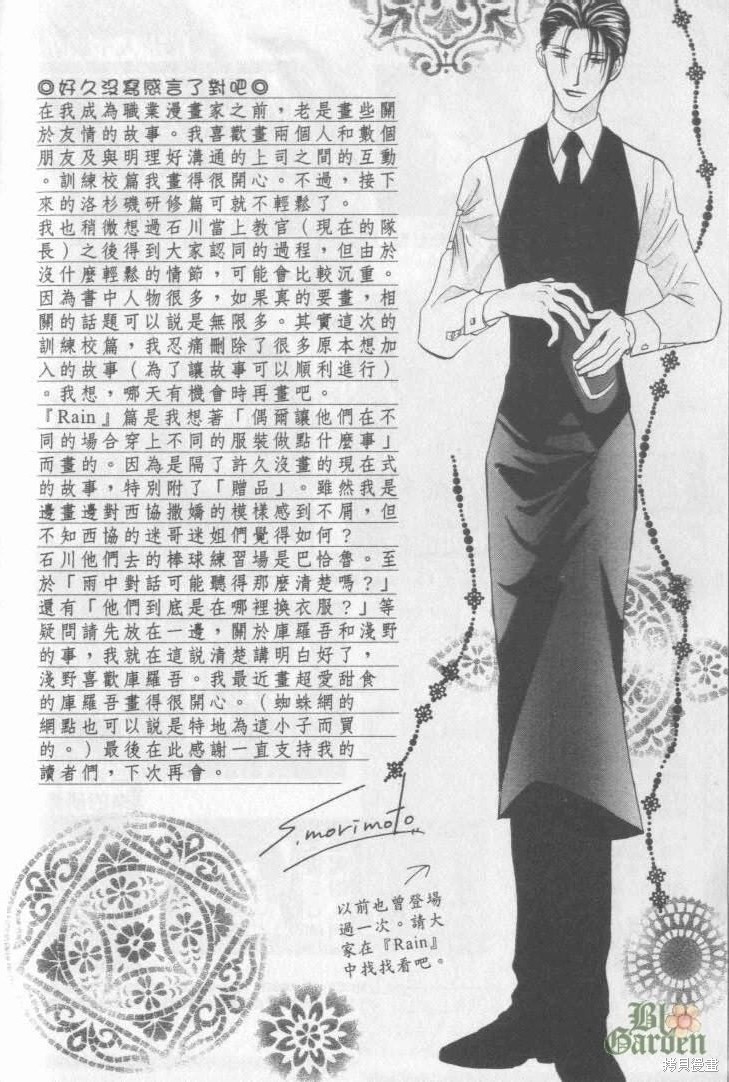 ◎好久沒寫感言了對吧◎
在我成為職業漫畫家之前，老是畫些關
於友情的故事。我喜歡畫兩個人和數個
朋友及與明理好溝通的上司之間的互動
。訓練校篇我畫得很開心。不過，接下
來的洛杉磯研修篇可就不輕鬆了。
我也稍微想過石川當上教官（現在的隊
長）之後得到大家認同的過程，但由於
沒什麼輕鬆的情節，可能會比較沉重。
因為書中人物很多，如果真的要畫，相
關的話題可以說是無限多。其實這次的
訓練校篇，我忍痛刪除了很多原本想加
入的故事（為了讓故事可以順利進行）
。我想，哪天有機會時再畫吧。
『Rain』篇是我想著「偶爾讓他們在不
同的場合穿上不同的服裝做點什麼事」
而畫的。因為是隔了許久沒畫的現在式
的故事，特別附了「贈品」。雖然我是
邊畫邊對西協撒嬌的模樣感到不屑，但
不知西協的迷哥迷姐們覺得如何？
石川他們去的棒球練習場是巴恰魯。至
於「雨中對話可能聽得那麼清楚嗎？」
還有「他們到底是在哪裡換衣服？」等
疑問請先放在一邊，關於庫羅吾和淺野
的事，我就在這說清楚講明白好了，
淺野喜歡庫羅吾。我最近畫超愛甜食
的庫羅吾畫得很開心。（蜘蛛網的
網點也可以說是特地為這小子而買
的。）最後在此感謝一直支持我的
讀者們，下次再會。
S.morimoto
以前也曾登場
過一次。請大
家在『Rain』
中找找看吧。
Bl
Garden
拷貝漫畫